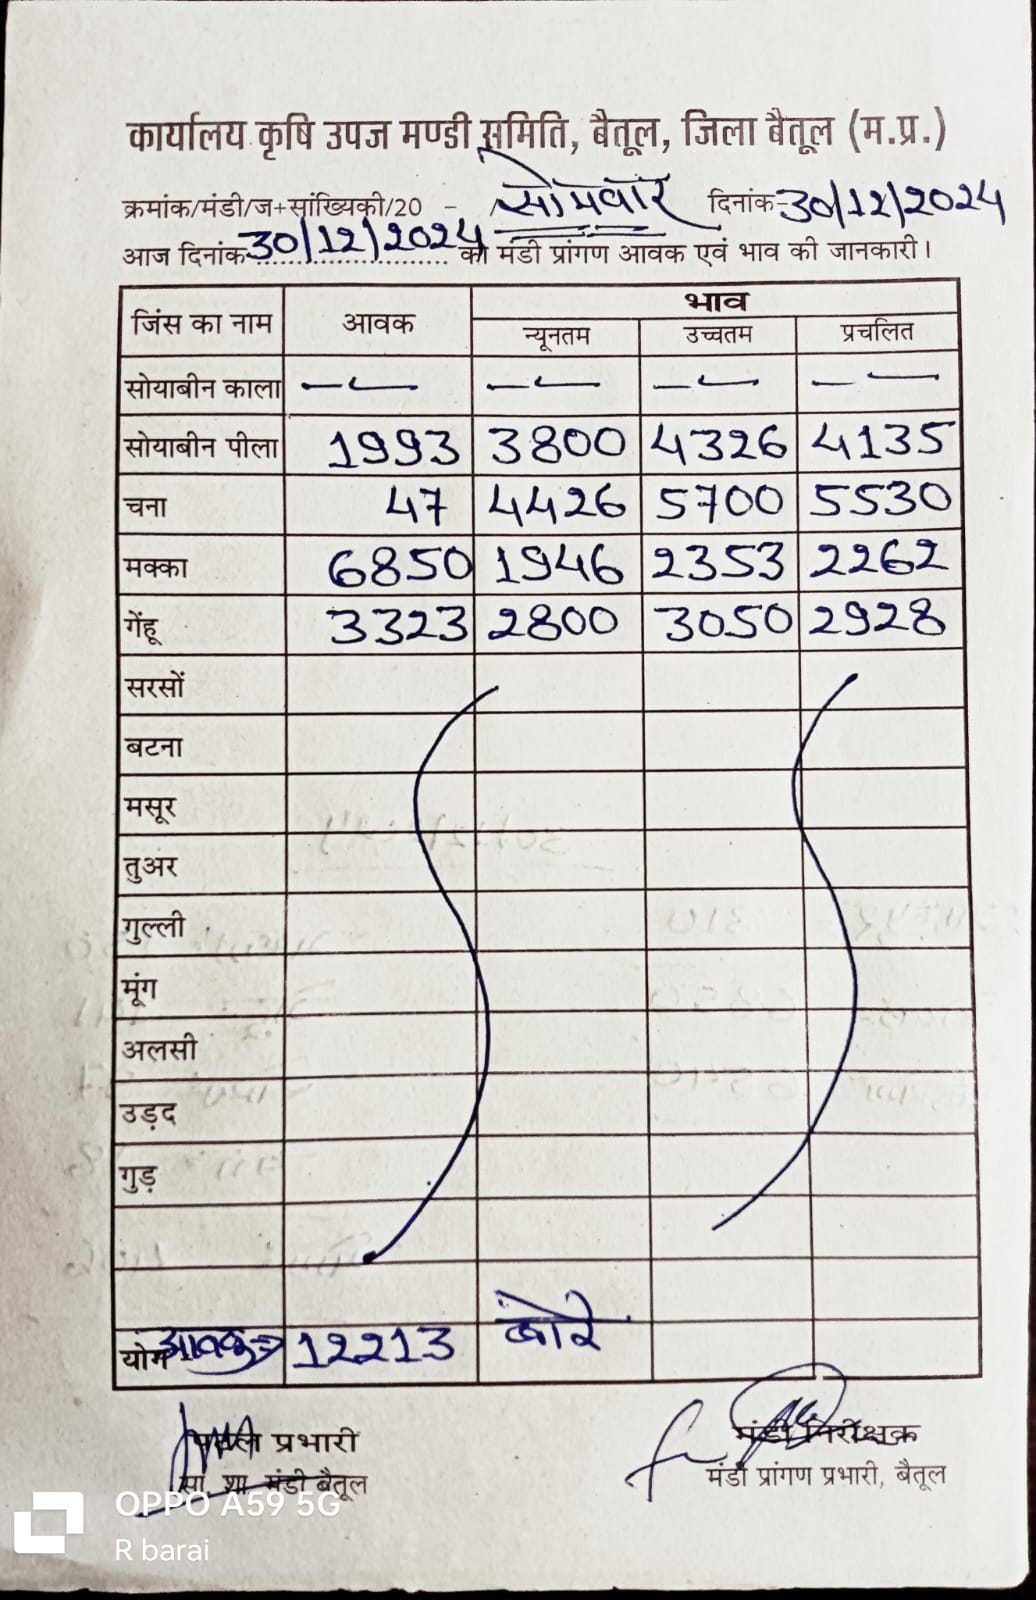 कार्यालय कृषि उपज मण्डी समिति, बैतूल, जिला बैतूल (म.प्र.)
क्रमांक/मंडी/ज+सांख्यिकी/20 - / सोमवार दिनांक-30/12/2024
आज दिनांक 30/12/2024 को मंडी प्रांगण आवक एवं भाव की जानकारी।
जिंस का नाम आवक भाव
न्यूनतम उच्चतम प्रचलित
सोयाबीन काला — — — —
सोयाबीन पीला 1993 3800 4326 4135
चना 47 4426 5700 5530
मक्का 6850 1946 2353 2262
गेंहू 3323 2800 3050 2928
सरसों
बटना
मसूर
तुअर
गुल्ली
मूंग
अलसी
उड़द
गुड़
योग आवक⇒ 12213 बोरे
प्रभारी मंडी निरीक्षक
सां. शा. मंडी बैतूल मंडी प्रांगण प्रभारी, बैतूल
OPPO A59 5G
R barai